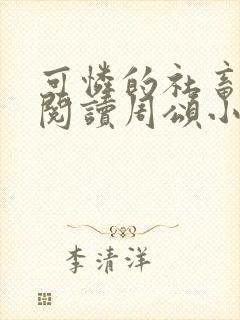 可憐的社畜
閱讀周頌小
李清洋